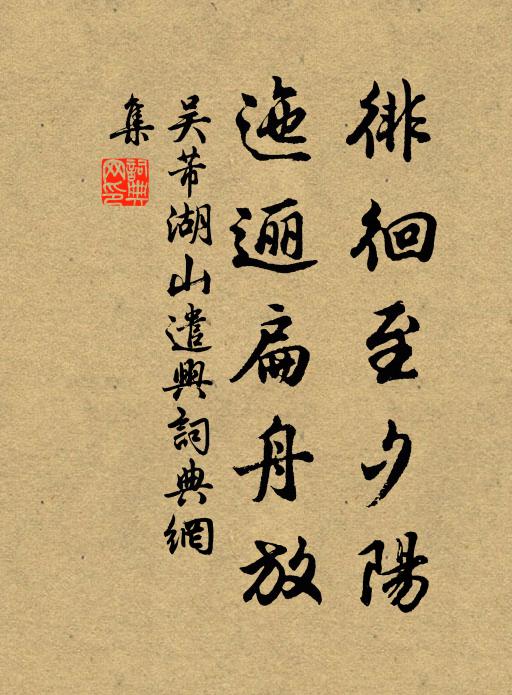 徘徊至夕陽
迤逦扁舟放
吴芾湖山遣興詞典網
集
詞典
网印